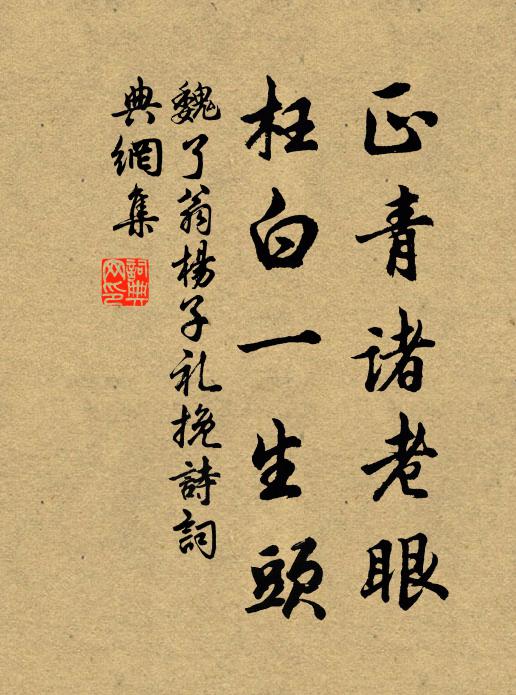 正青諸老眼
枉白一生頭
魏了翁楊子礼挽詩詞
典網集
詞典
网印